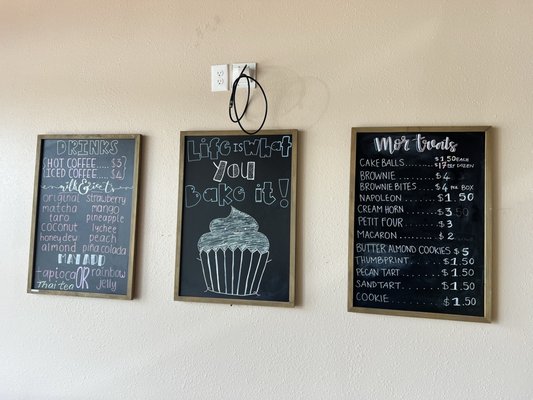 DRINKS
HOT COFFEE.....$3
ICED COFFEE....$4
milk &
original strawberry
matcha mango
taro pineapple
coconut lychee
honeydew peach
almond piña colada
MAY ADD
tapioca OR rainbow
jelly
Thai tea
Life is what
YOU
Bake it!
Mor treats
CAKE BALLS.....$1.50 EACH
$17 PER DOZEN
BROWNIE........$4
BROWNIE BITES....$4 PER BOX
NAPOLEON.......$1.50
CREAM HORN.....$3
PETIT FOUR......$3
MACARON........$2
BUTTER ALMOND COOKIES $5
THUMBPRINT.....$1.50
PECAN TART.....$1.50
SANDTART......$1.50
COOKIE........$1.50